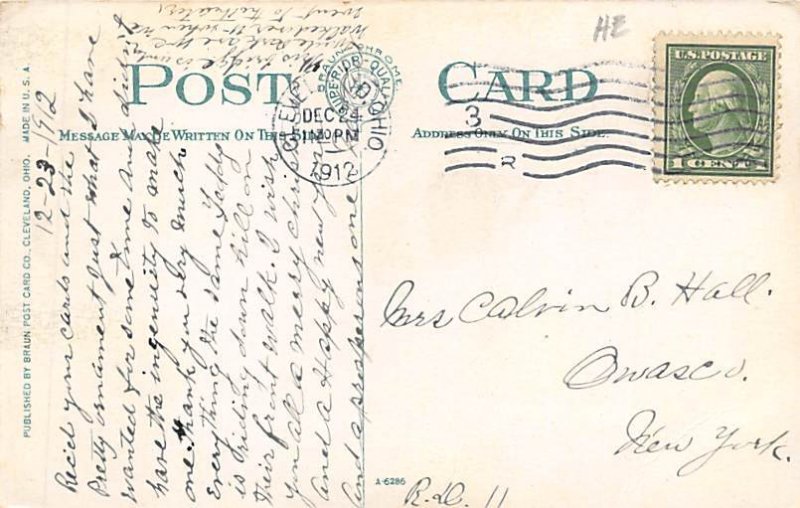 POST CARD
MESSAGE MAY BE WRITTEN ON THIS SIDE
ADDRESS ONLY ON THIS SIDE
BRAUNOCHROME
SUPERIOR QUALITY
U.S. POSTAGE
1 CENT
CLEVELAND, OHIO
DEC 24
1912
3
R
HE
12-23-1912
Rec'd your cards and the
Pretty ornament Just what I have
wanted for some time and didn't
have the ingenuity to make
one. Thank you very much
Everything the same
is sliding down hill on
their front walk. I wish
you all a merry Christmas
and a Happy new year
and a prosperous one
This bridge is
Park
walked over it when we
went to
Mrs Calvin B. Hall.
Owasco.
New York.
R.D. 11
A-6286
PUBLISHED BY BRAUN POST CARD CO., CLEVELAND, OHIO. MADE IN U.S.A.